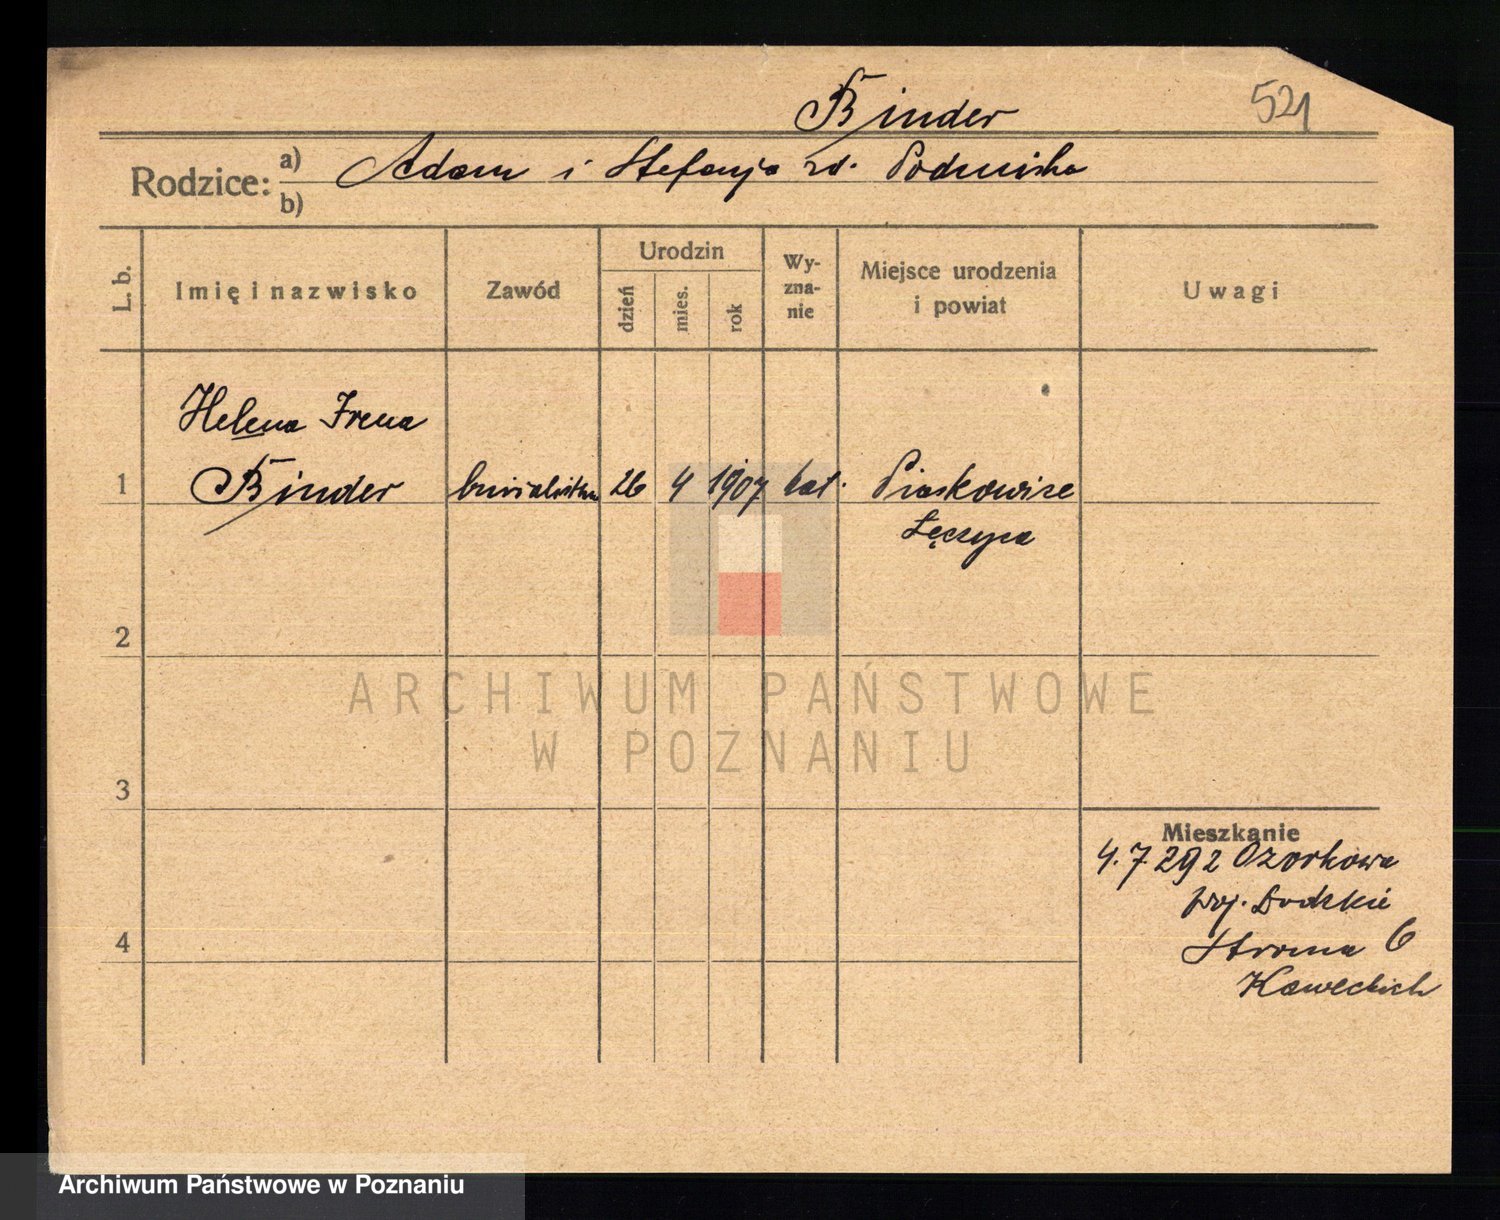 Binder
521
Rodzice: a) Adam i Stefanja zd. Podmiska
b)
L. b.
Imię i nazwisko
Zawód
Urodzin
dzień
mies.
rok
Wy-
zna-
nie
Miejsce urodzenia
i powiat
Uwagi
Helena Irena
1 Binder 26 4 1907 kat. Piaskowice
Łęczyca
2
ARCHIWUM PAŃSTWOWE
W POZNANIU
3
Mieszkanie
4.7 292 Ozorkowa
woj. Łódzkie
4
Stroma 6
Kaweckich
Archiwum Państwowe w Poznaniu